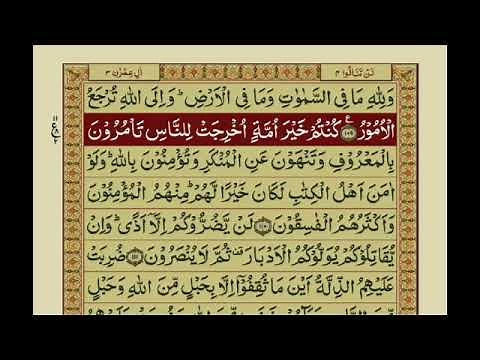 لن تنالوا ۴
اٰل عمرٰن ۳
وَلِلّٰهِ مَا فِی السَّمٰوٰتِ وَمَا فِی الْاَرْضِ ؕ وَاِلَی اللّٰهِ تُرْجَعُ
الْاُمُوْرُ ۟﴿۱۰۹﴾ كُنْتُمْ خَیْرَ اُمَّةٍ اُخْرِجَتْ لِلنَّاسِ تَاْمُرُوْنَ
بِالْمَعْرُوْفِ وَتَنْهَوْنَ عَنِ الْمُنْكَرِ وَتُؤْمِنُوْنَ بِاللّٰهِ ؕ وَلَوْ
اٰمَنَ اَهْلُ الْكِتٰبِ لَكَانَ خَیْرًا لَّهُمْ ؕ مِنْهُمُ الْمُؤْمِنُوْنَ
وَاَكْثَرُهُمُ الْفٰسِقُوْنَ ﴿۱۱۰﴾ لَنْ یَّضُرُّوْكُمْ اِلَّاۤ اَذًی ؕ وَاِنْ
یُّقَاتِلُوْكُمْ یُوَلُّوْكُمُ الْاَدْبَارَ ۟ ثُمَّ لَا یُنْصَرُوْنَ ﴿۱۱۱﴾ ضُرِبَتْ
عَلَیْهِمُ الذِّلَّةُ اَیْنَ مَا ثُقِفُوْۤا اِلَّا بِحَبْلٍ مِّنَ اللّٰهِ وَحَبْلٍ